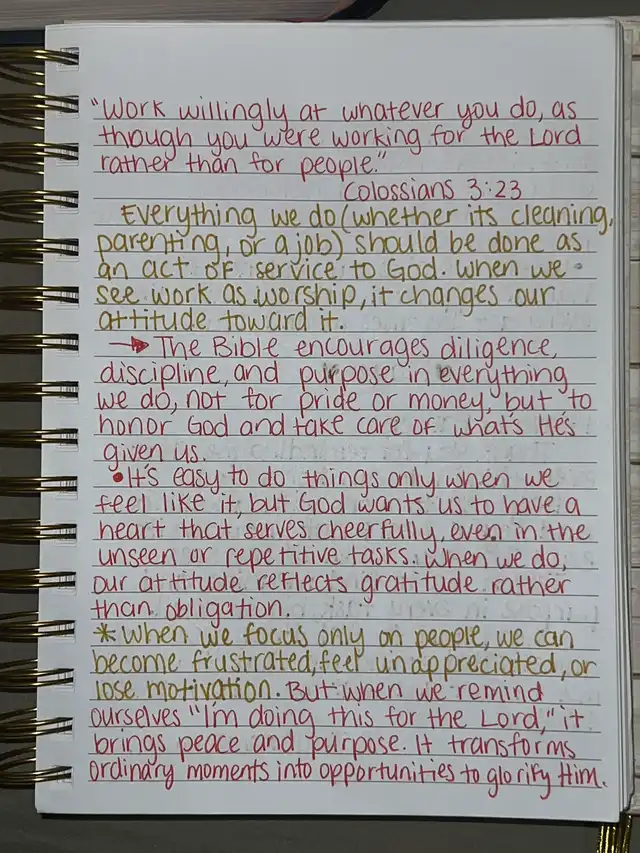 "Work willingly at whatever you do, as
though you were working for the Lord
rather than for people."
Colossians 3:23
Everything we do (whether its cleaning,
parenting, or a job) should be done as
an act of service to God. When we
see work as worship, it changes our
attitude toward it.
→ The Bible encourages diligence,
discipline, and purpose in everything
we do, not for pride or money, but to
honor God and take care of what's He's
given us.
• It's easy to do things only when we
feel like it, but God wants us to have a
heart that serves cheerfully, even in the
unseen or repetitive tasks. When we do,
our attitude reflects gratitude rather
than obligation.
* When we focus only on people, we can
become frustrated, feel unappreciated, or
lose motivation. But when we remind
ourselves "I'm doing this for the Lord," it
brings peace and purpose. It transforms
ordinary moments into opportunities to glorify Him.